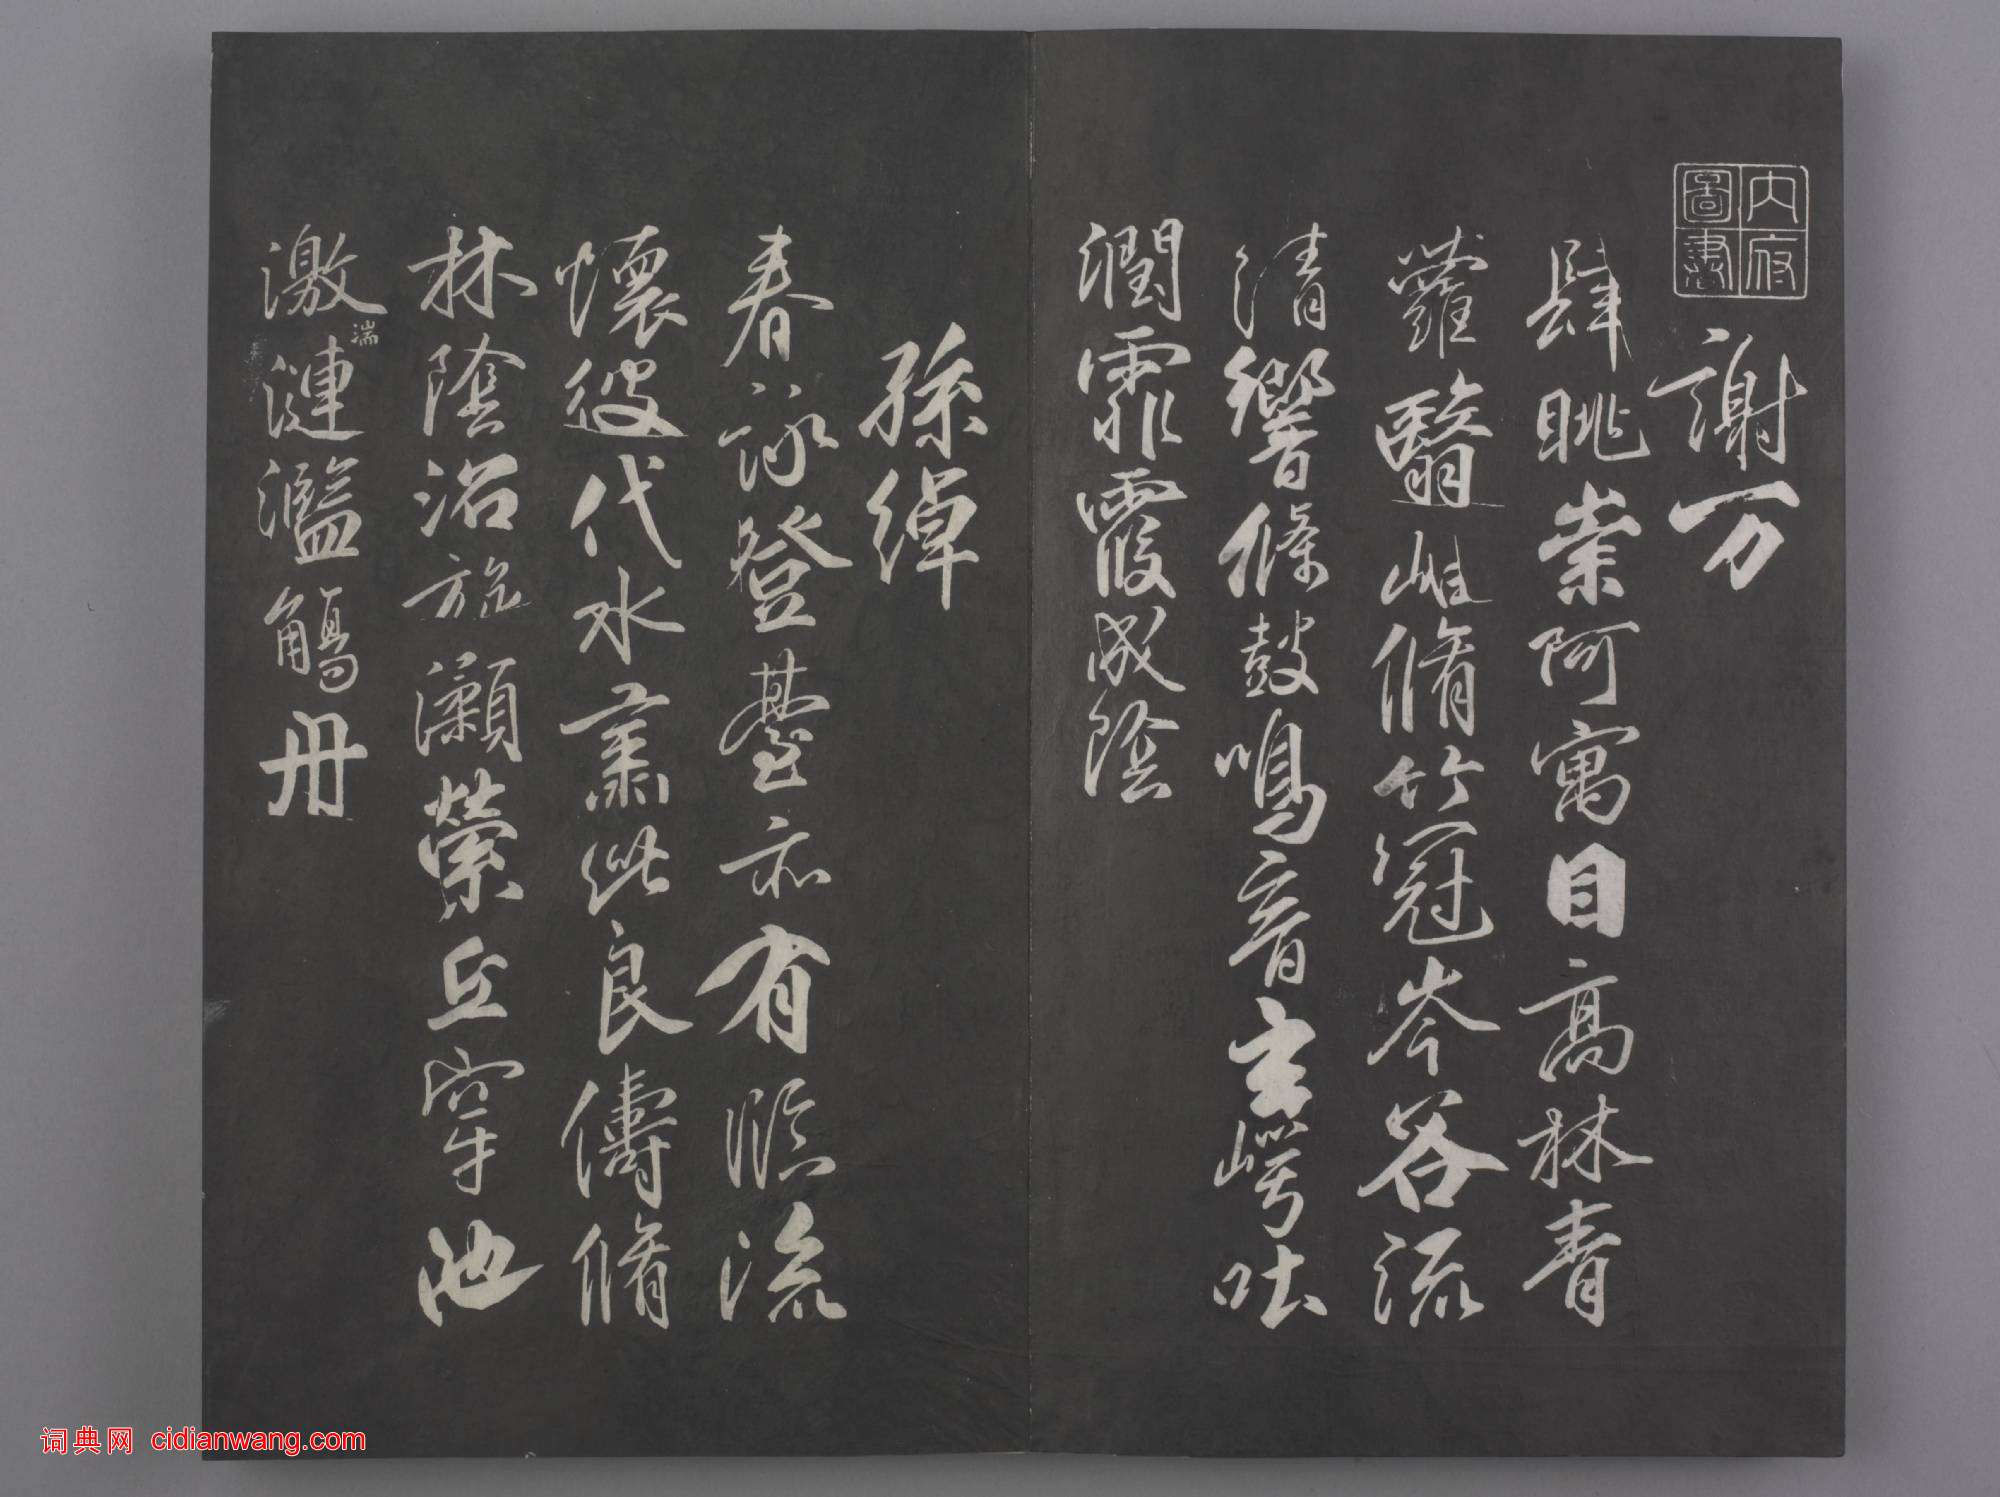 內府圖書
謝万
肆眺崇阿寓目高林青
蘿翳岫脩竹冠岑谷流
清響條鼓鳴音玄崿吐
潤霏霞成陰
孫綽
春詠登臺亦有臨流
懷彼代水肅此良儔脩
林陰沼旋瀨縈丘穿池
激湍漣濫觴舟
词典网 cidianwang.com